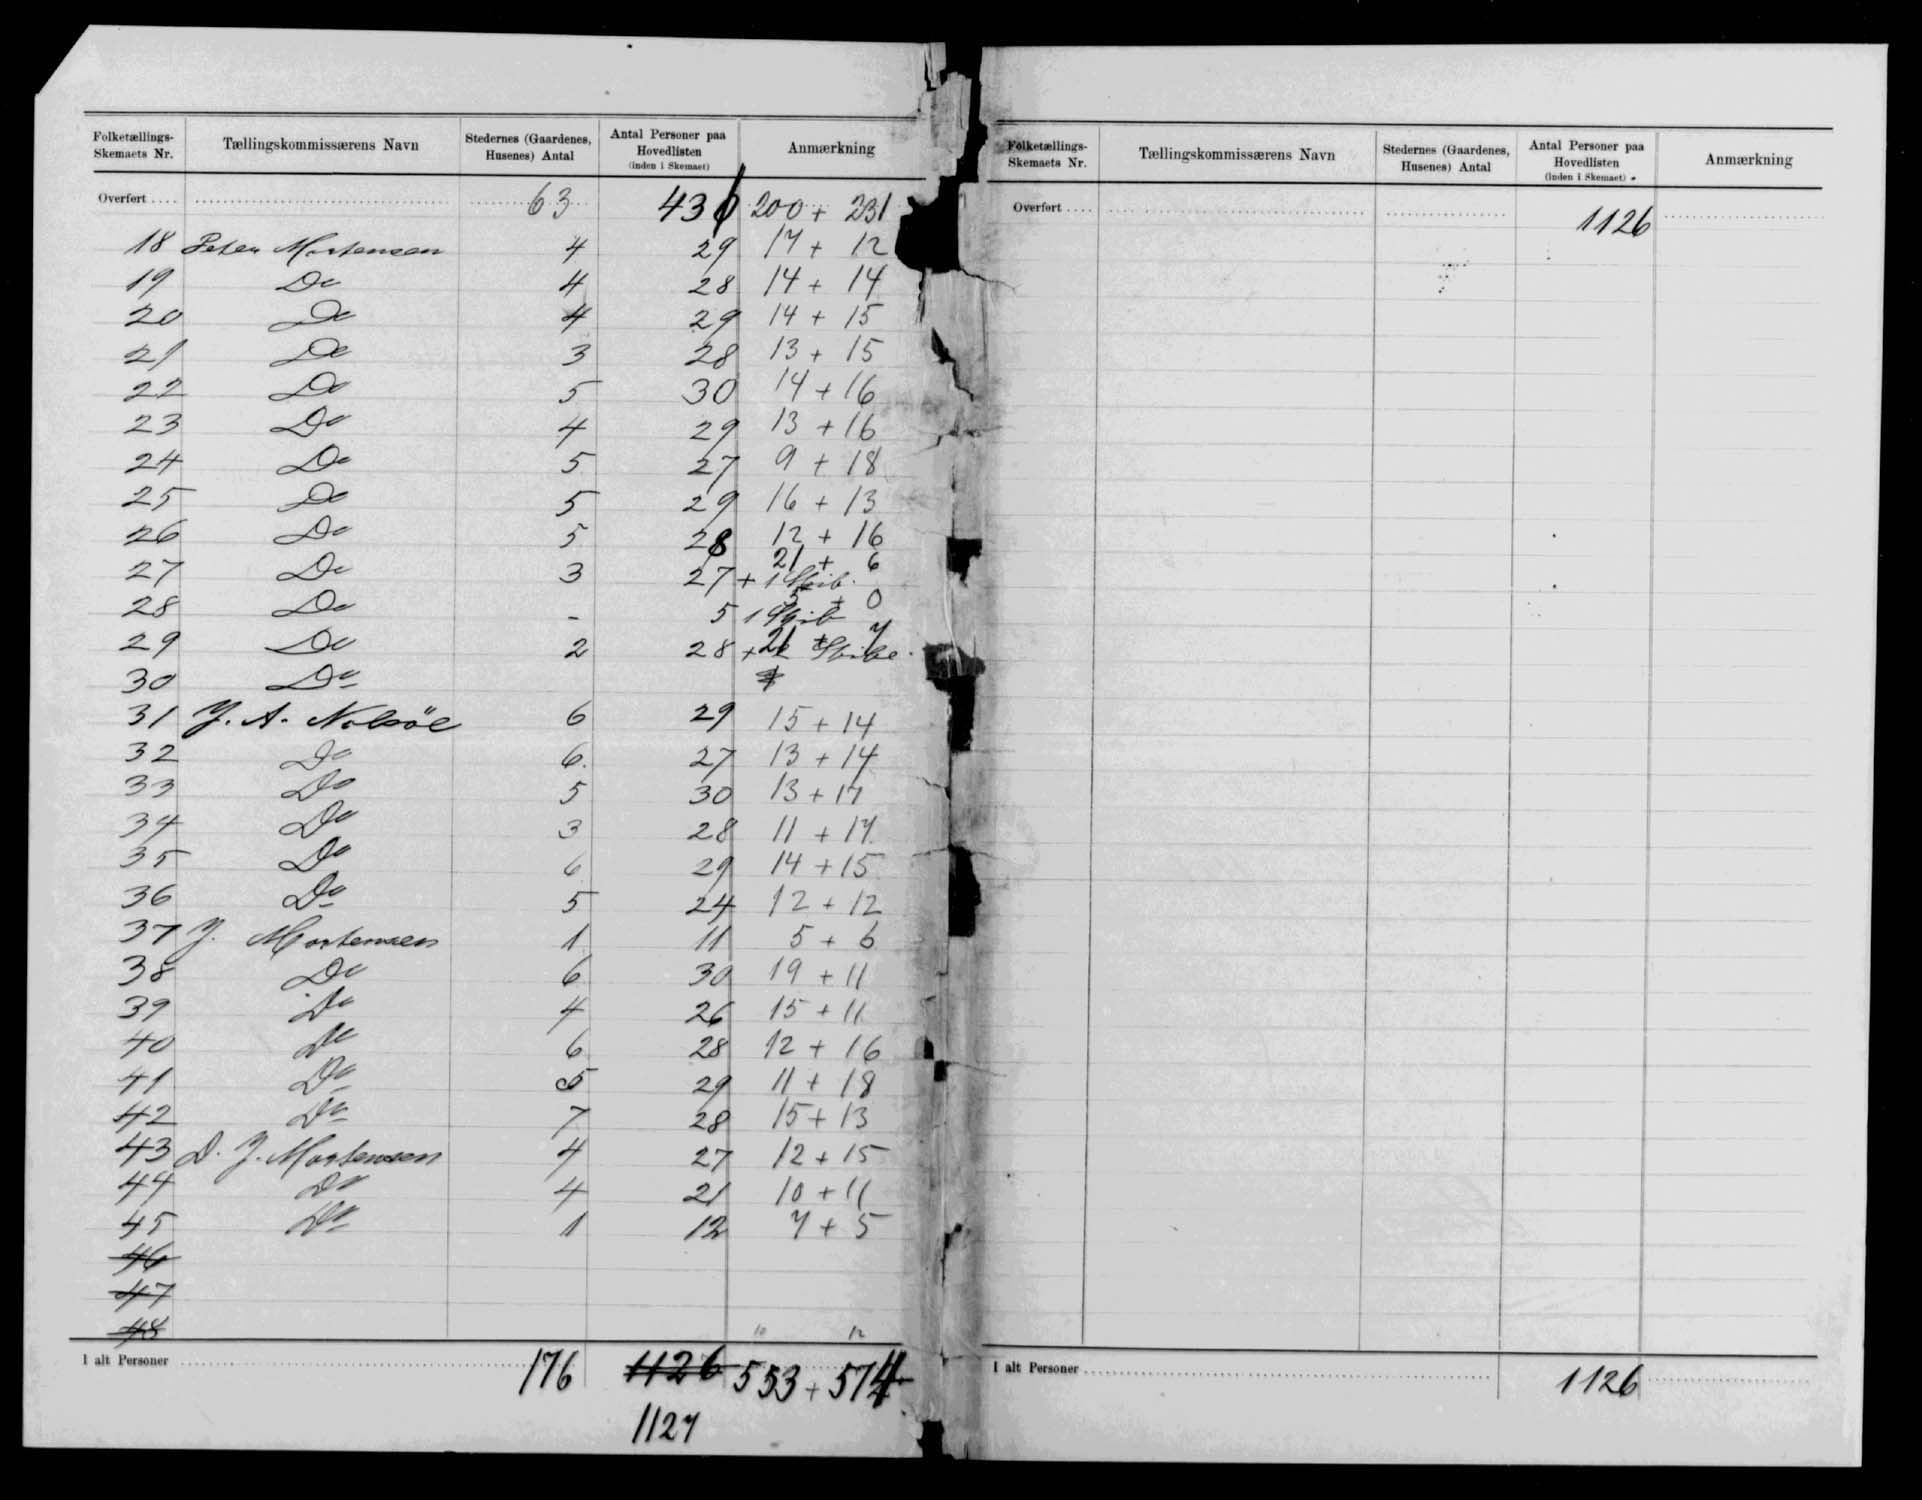 Folketællings-Skemaets Nr. Tællingskommissærens Navn Stedernes (Gaardenes, Husenes) Antal Antal Personer paa Hovedlisten (inden i Skemaet) Anmærkning
Overført .... 63 431 200 + 231
18 Peter Mortensen 4 29 17 + 12
19 Do 4 28 14 + 14
20 Do 4 29 14 + 15
21 Do 3 28 13 + 15
22 Do 5 30 14 + 16
23 Do 4 29 13 + 16
24 Do 5 27 9 + 18
25 Do 5 29 16 + 13
26 Do 5 28 12 + 16
27 Do 3 27 21 + 6 + 1 Skib.
28 Do - 5 5 + 0 1 Skib
29 Do 2 28 21 + 7 + 2 Skibe.
30 Do
31 J. A. Nolsöe 6 29 15 + 14
32 Do 6. 27 13 + 14
33 Do 5 30 13 + 17
34 Do 3 28 11 + 17
35 Do 6 29 14 + 15
36 Do 5 24 12 + 12
37 J. Mortensen 1 11 5 + 6
38 Do 6 30 19 + 11
39 Do 4 26 15 + 11
40 Do 6 28 12 + 16
41 Do 5 29 11 + 18
42 Do 7 28 15 + 13
43 D. J. Mortensen 4 27 12 + 15
44 Do 4 21 10 + 11
45 Do 1 12 7 + 5
46
47
48
10 12
I alt Personer 176 1126 553 + 574
1127
Folketællings-Skemaets Nr. Tællingskommissærens Navn Stedernes (Gaardenes, Husenes) Antal Antal Personer paa Hovedlisten (inden i Skemaet) Anmærkning
Overført .... 1126
I alt Personer 1126